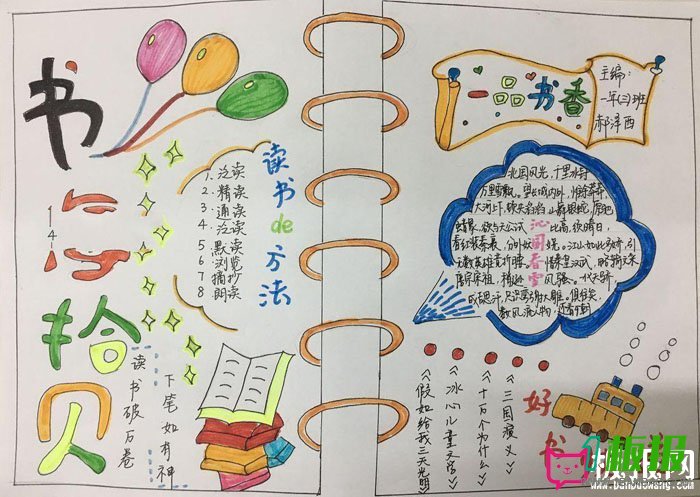 书
拾
贝
读书de方法
1. 泛读
2. 精读
3. 通读
4. 读
5 默读
6 浏览
7 摘抄
8 朗读
读书破万卷
下笔如有神
一品书香
主编:
一年(三)班
郝泽西
沁园春雪
北国风光,千里冰封
万里雪飘。望长城内外,惟余莽莽,
大河上下,顿失滔滔,山舞银蛇,原驰
蜡象,欲与天公试比高,须晴日,
看红装素裹,分外妖娆。江山如此多娇,引
无数英雄竞折腰。惜秦皇汉武,略输文采
唐宗宋祖,稍逊风骚。一代天骄,
成吉思汗,只识弯弓射大雕。俱往矣
数风流人物,还看今朝
《假如给我三天光明》
《冰心儿童文学》
《十万个为什么》
《三国演义》
好书
板报网
www.banbaowang.com